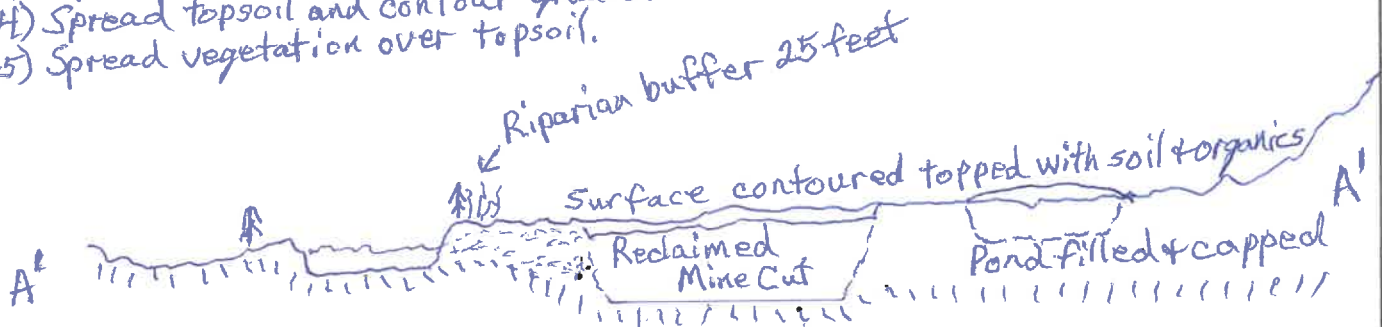 4) Spread topsoil and contour
5) Spread vegetation over topsoil.
Riparian buffer 25 feet
Surface contoured topped with soil & organics
A'
A'
Reclaimed
Mine Cut
Pond filled & capped